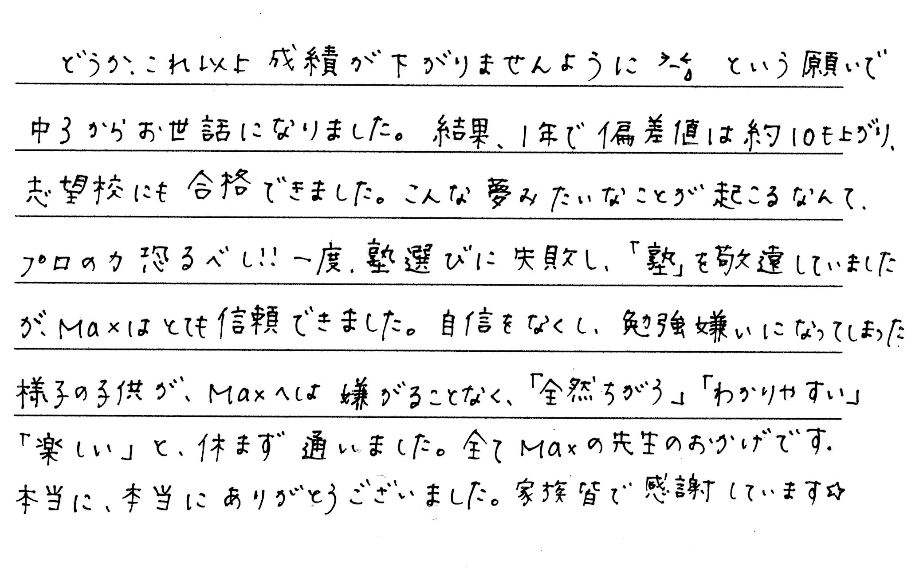 どうか、これ以上成績が下がりませんように という願いで
中3からお世話になりました。結果、1年で偏差値は約10も上がり、
志望校にも合格できました。こんな夢みたいなことが起こるなんて、
プロの力恐るべし!!一度、塾選びに失敗し、「塾」を敬遠していました
が、Maxはとても信頼できました。自信をなくし、勉強嫌いになってしまった
様子の子供が、Maxへは嫌がることなく、「全然ちがう」「わかりやすい」
「楽しい」と、休まず通いました。全てMaxの先生のおかげです。
本当に、本当にありがとうございました。家族皆で感謝しています☆